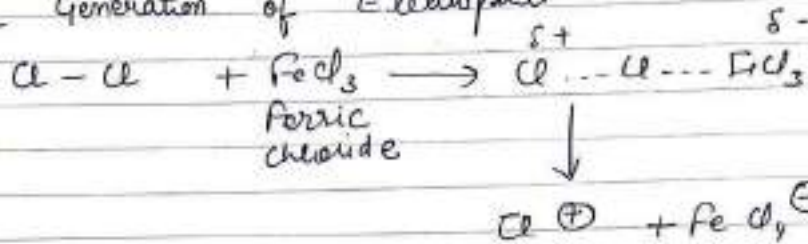 Generation of Electrophile
δ+ δ-
Cl - Cl + FeCl₃ ⟶ Cl ... Cl --- FeCl₃
Ferric
chloride
↓
Cl ⊕ + FeCl₄ ⊖